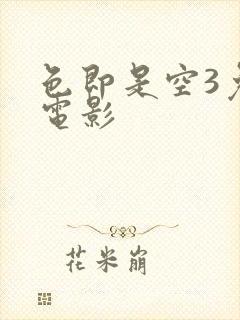 色即是空3
電影
花米崩